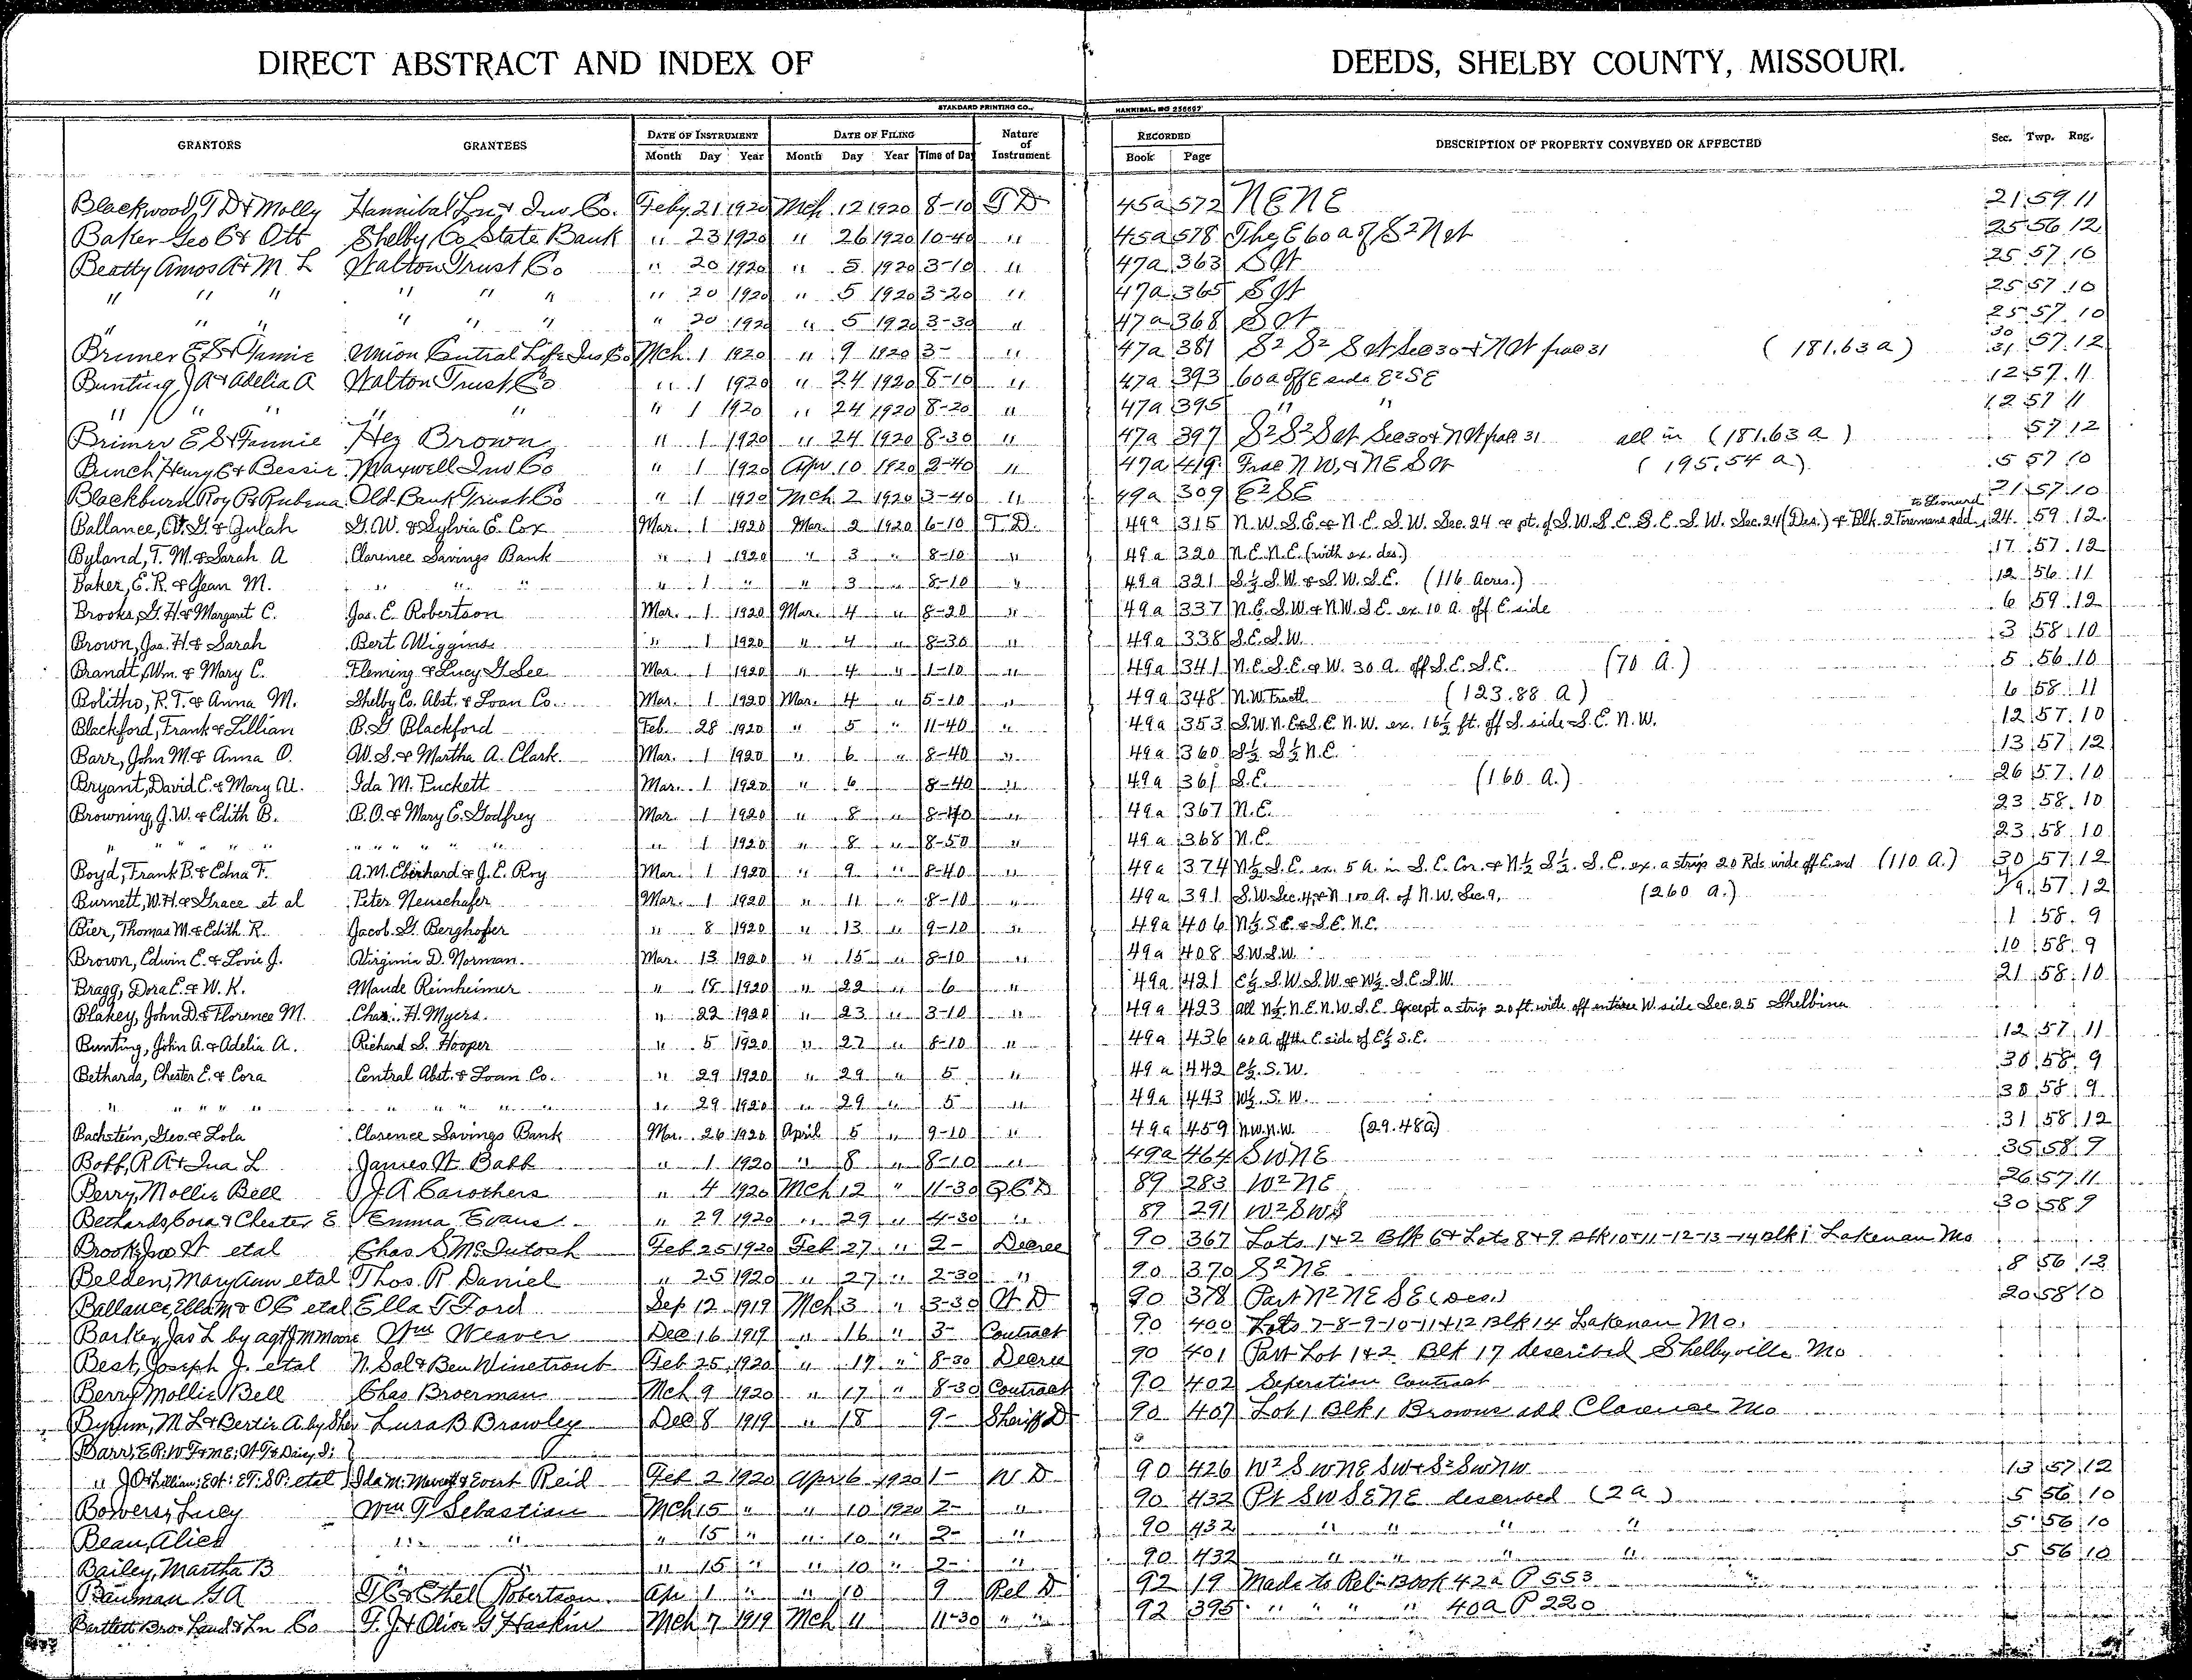 DIRECT ABSTRACT AND INDEX OF DEEDS, SHELBY COUNTY, MISSOURI.
STANDARD PRINTING CO., HANNIBAL, MO 256667
GRANTORS GRANTEES DATE OF INSTRUMENT DATE OF FILING Nature of Instrument RECORDED DESCRIPTION OF PROPERTY CONVEYED OR AFFECTED Sec. Twp. Rng.
Month Day Year Month Day Year Time of Day Book Page
Blackwood, T D & Molly Hannibal Ln & Inv Co. Feby 21 1920 Mch. 12 1920 8-10 T D 45a 572 NENE 21 59 11
Baker Geo C & Ott Shelby Co State Bank " 23 1920 " 26 1920 10-40 " 45a 578 The E 60 a of S2 N 25 56 12
Beatty Amos A & M L Walton Trust Co " 20 1920 " 5 1920 3-10 " 47a 363 25 57 10
" " " " " " " 20 1920 " 5 1920 3-20 " 47a 365 25 57 10
" " " " " " " 20 1920 " 5 1920 3-30 " 47a 368 25 57 10
Brimer E S & Fannie Union Central Life Ins Co Mch. 1 1920 " 9 1920 3- " 47a 381 S2 S2 Sec 30 & frac 31 (181.63 a) 30 31 57 12
Bunting J A & Adelia A Walton Trust Co " 1 1920 " 24 1920 8-10 " 47a 393 60 a off E side E2 SE 12 57 11
" " " " " " 1 1920 " 24 1920 8-20 " 47a 395 " " 12 57 11
Brimer E S & Fannie Hez Brown " 1 1920 " 24 1920 8-30 " 47a 397 S2 S2 Sec 30 & frac 31 all in (181.63 a) 57 12
Bunch Henry C & Bessie Maxwell Inv Co " 1 1920 Apr. 10 1920 2-40 " 47a 419 Frac N W, & NE (195.54 a) 5 57 10
Blackburn Roy P & Rubena Old Bank Trust Co " 1 1920 Mch 2 1920 3-40 " 49a 309 E2 SE 21 57 10
Ballance, W. G. & Zulah G. W. & Sylvia E. Cox Mar. 1 1920 Mar. 2 1920 6-10 T. D. 49a 315 N. W. S. E. & N. E. S. W. Sec. 24 & pt. of S. W. S. E. S. E. S. W. Sec. 24 (Des.) & Blk 2 Foremans add. to Leonard 24 59 12
Byland, T. M. & Sarah A Clarence Savings Bank " 1 1920 " 3 " 8-10 " 49a 320 N. E. N. E. (with ex. des.) 17 57 12
Baker, E. R. & Jean M. " " " " 1 " " 3 " 8-10 " 49a 321 S½ S. W. & S. W. S. E. (116 Acres.) 12 56 11
Brooks, G. H. & Margaret C. Jas. E. Robertson Mar. 1 1920 Mar. 4 " 8-20 " 49a 337 N. E. S. W. & N. W. S. E. ex. 10 A. off E. side 6 59 12
Brown, Jas. H. & Sarah Bert Wiggins " 1 1920 " 4 " 8-30 " 49a 338 S. E. S. W. 3 58 10
Brandt, Wm. & Mary C. Fleming & Lucy G. See Mar. 1 1920 " 4 " 1-10 " 49a 341 N. E. S. E. & W. 30 A. off S. E. S. E. (70 A.) 5 56 10
Bolitho, R. T. & Anna M. Shelby Co. Abst. & Loan Co. Mar. 1 1920 Mar. 4 " 5-10 " 49a 348 N. W. Fractl. (123.88 A) 6 58 11
Blackford, Frank & Lillian B. G. Blackford Feb. 28 1920 " 5 " 11-40 " 49a 353 S. W. N. E. & S. E. N. W. ex. 16½ ft. off S. side S. E. N. W. 12 57 10
Barr, John M. & Anna O. W. S. & Martha A. Clark Mar. 1 1920 " 6 " 8-40 " 49a 360 S½ S½ N. E. 13 57 12
Bryant, David E. & Mary U. Ida M. Puckett Mar. 1 1920 " 6 8-40 " 49a 361 S. E. (160 A.) 26 57 10
Browning, J. W. & Edith B. B. O. & Mary E. Godfrey Mar. 1 1920 " 8 " 8-40 " 49a 367 N. E. 23 58 10
" " " " " " " " " " 1 1920 " 8 " 8-50 " 49a 368 N. E. 23 58 10
Boyd, Frank B. & Edna F. A. M. Eberhard & J. E. Roy Mar. 1 1920 " 9 " 8-40 " 49a 374 N½ S. E. ex. 5 A. in S. E. Cor. & N½ S½ S. E. ex. a strip 20 Rds wide off E. end (110 A.) 30 57 12
Burnett, W. H. & Grace et al Peter Neuschafer Mar. 1 1920 " 11 " 8-10 " 49a 391 S. W. Sec. 4, & N 100 A. of N. W. Sec. 9. (260 a.) 4/9 57 12
Bier, Thomas M. & Edith R. Jacob G. Berghofer " 8 1920 " 13 " 9-10 " 49a 406 N½ S. E. & S. E. N. E. 1 58 9
Brown, Edwin E. & Lovie J. Virginia D. Norman. Mar. 13 1920 " 15 " 8-10 " 49a 408 S. W. S. W. 10 58 9
Bragg, Dora E. & W. K. Maude Reinheimer " 18 1920 " 22 " 6 " 49a 421 E½ S. W. S. W. & W½ S. E. S. W. 21 58 10
Blakey, John D. & Florence M. Chas. H. Myers. " 22 1920 " 23 " 3-10 " 49a 423 All N½ N. E. N. W. S. E. Except a strip 20 ft. wide off entire W side Sec. 25 Shelbina
Bunting, John A. & Adelia A. Richard S. Hooper " 5 1920 " 27 " 8-10 " 49a 436 60 A. off the E. side of E½ S. E. 12 57 11
Bethards, Chester E. & Cora Central Abst. & Loan Co. " 29 1920 " 29 " 5 " 49a 442 E½ S. W. 30 58 9
" " " " " " " " " " 29 1920 " 29 " 5 " 49a 443 W½ S. W. 30 58 9
Bachstein, Geo. & Lola Clarence Savings Bank Mar. 26 1920 April 5 " 9-10 " 49a 459 N. W. N. W. (29.48a) 31 58 12
Boff, R A & Ina L James W. " 1 1920 " 8 " 8-10 " 49a 464 SWNE 35 58 9
Berry, Mollie Bell J A Carothers " 4 1920 Mch 12 " 11-30 Q C D 89 283 W2 NE 26 57 11
Bethards, Cora & Chester E Emma Evans " 29 1920 " 29 " 4-30 " 89 291 W2 SW 30 58 9
Brook, et al Chas S McIntosh Feb 25 1920 Feb 27 " 2- Decree 90 367 Lots 1 & 2 Blk 6 & Lots 8 & 9 Blk 10 & 11-12-13-14 Blk 1 Lakenan Mo
Belden, Mary Ann et al Thos. R Daniel " 25 1920 " 27 " 2-30 " 90 370 S2 NE 8 56 12
Ballance, Ella M & O C et al Ella T Ford Sep 12 1919 Mch 3 " 3-30 W D 90 378 Part N2 NE SE (Des.) 20 58 10
Barker, Jas L by agt J M Moore Wm Weaver Dec 16 1919 " 16 " 3- Contract 90 400 Lots 7-8-9-10-11 & 12 Blk 14 Lakenan Mo.
Best, Joseph J. et al N. Sol & Ben Winetroub Feb 25 1920 " 17 " 8-30 Decree 90 401 Part Lot 1 & 2 Blk 17 described Shelbyville Mo
Berry Mollie Bell Chas Broerman Mch 9 1920 " 17 " 8-30 Contract 90 402 Seperation Contract
Bypum, M L & Bertie A. by Sher Lura B Brawley Dec 8 1919 " 18 9- Sheriff D 90 407 Lot 1 Blk 1 Browns add Clarence Mo
Barr, E R; W F & M E; W T & Daisy D;
" J O & Lillian; E et al Ida M. & Evert Reid Feb 2 1920 Apr 6 1920 1- W D 90 426 W2 SWNE SW & S2 SWNW 13 57 12
Bowers, Lucy Wm T Sebastian Mch 15 " " 10 1920 2- " 90 432 Pt SW SENE described (2 a) 5 56 10
Bean, Alice " " " 15 " " 10 " 2- " 90 432 " " " " 5 56 10
Bailey, Martha B " " 15 " " 10 " 2- " 90 432 " " " " 5 56 10
Bauman G A T C & Ethel Robertson Apr 1 " " 10 9 Rel D 92 19 Made to Rel - Book 42a P 553
Bartlett Bros Land & Ln Co F. J & Olive G Haskin Mch 7 1919 Mch 11 11-30 " " 92 395 " " " " 40a P 220